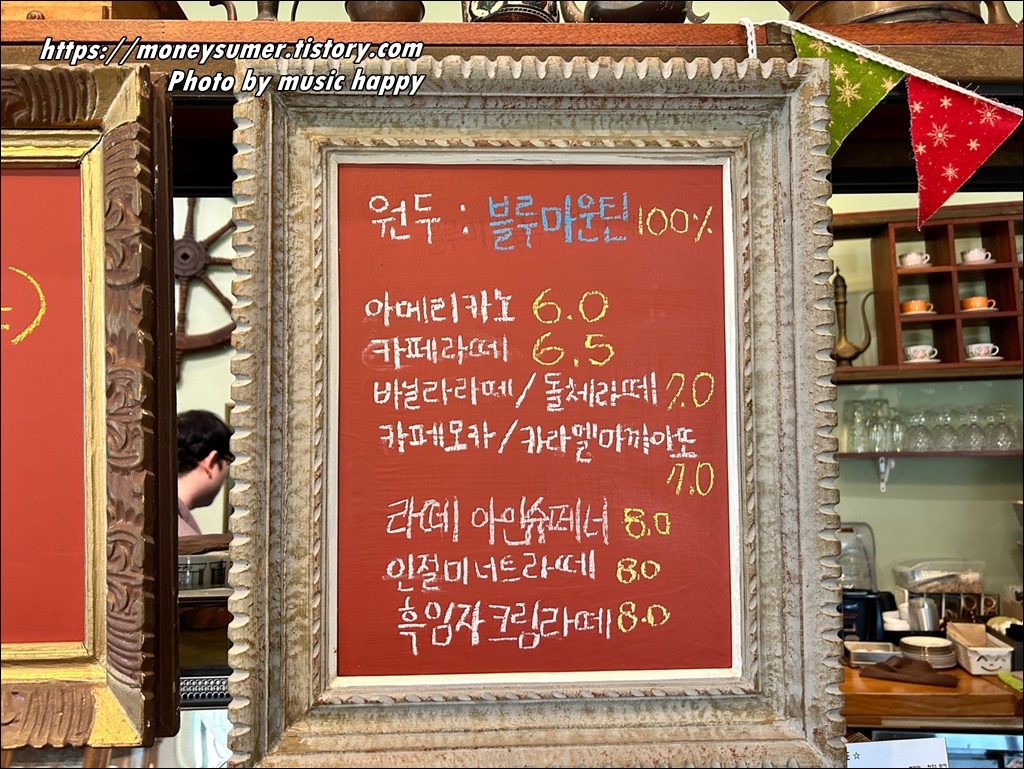 https://moneysumer.tistory.com
Photo by music happy
원두 : 블루마운틴 100%
아메리카노 6.0
카페라떼 6.5
바닐라라떼/돌체라떼 7.0
카페모카/카라멜마끼아또
7.0
라떼 아인슈페너 8.0
인절미너트라떼 8.0
흑임자크림라떼 8.0